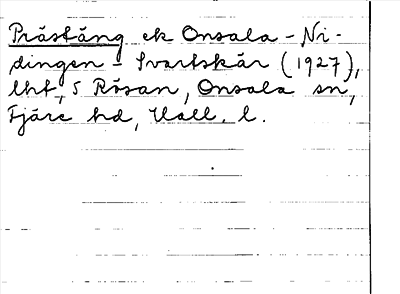 Präståäng ek Onsala - Ni-
dingen - Svartskär (1927),
lht, S Rösan, Onsala sn,
Fjäre hd, Hall. l.